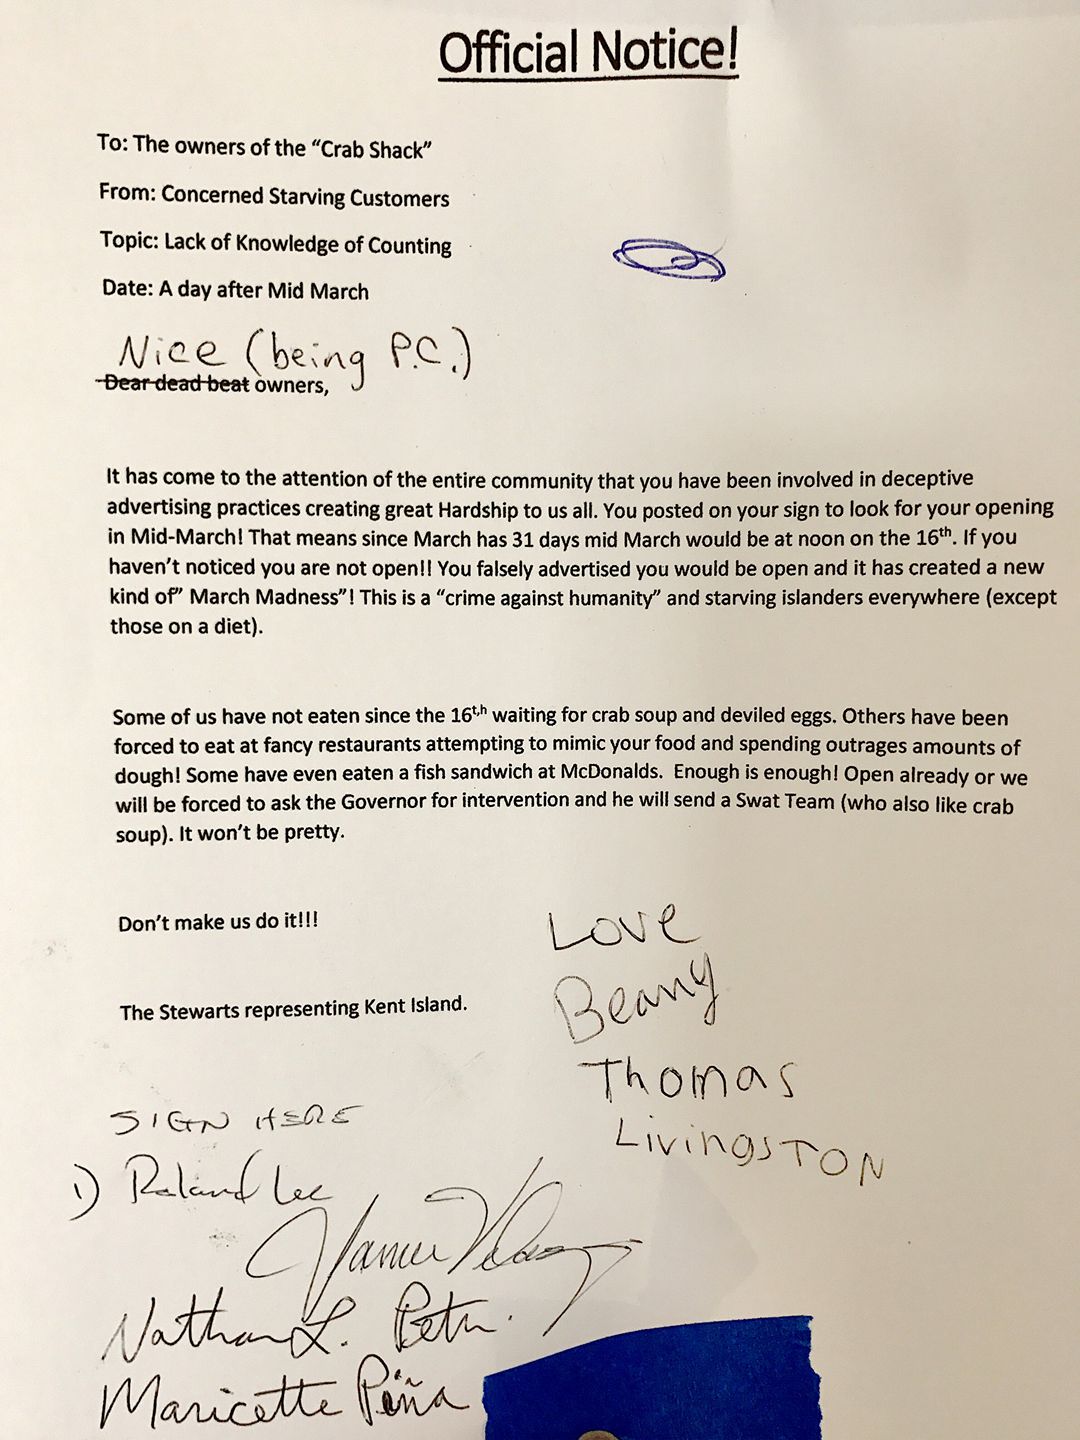 Official Notice!
To: The owners of the “Crab Shack”
From: Concerned Starving Customers
Topic: Lack of Knowledge of Counting
Date: A day after Mid March
Nice (being P.C.)
Dear dead beat owners,
It has come to the attention of the entire community that you have been involved in deceptive
advertising practices creating great Hardship to us all. You posted on your sign to look for your opening
in Mid-March! That means since March has 31 days mid March would be at noon on the 16th. If you
haven’t noticed you are not open!! You falsely advertised you would be open and it has created a new
kind of” March Madness”! This is a “crime against humanity” and starving islanders everywhere (except
those on a diet).
Some of us have not eaten since the 16t,h waiting for crab soup and deviled eggs. Others have been
forced to eat at fancy restaurants attempting to mimic your food and spending outrages amounts of
dough! Some have even eaten a fish sandwich at McDonalds. Enough is enough! Open already or we
will be forced to ask the Governor for intervention and he will send a Swat Team (who also like crab
soup). It won’t be pretty.
Don’t make us do it!!!
The Stewarts representing Kent Island.
Love
Beany
Thomas
LivingsTON
SIGN HERE
1) Roland Lee
Nathan L.
Maricette Piña